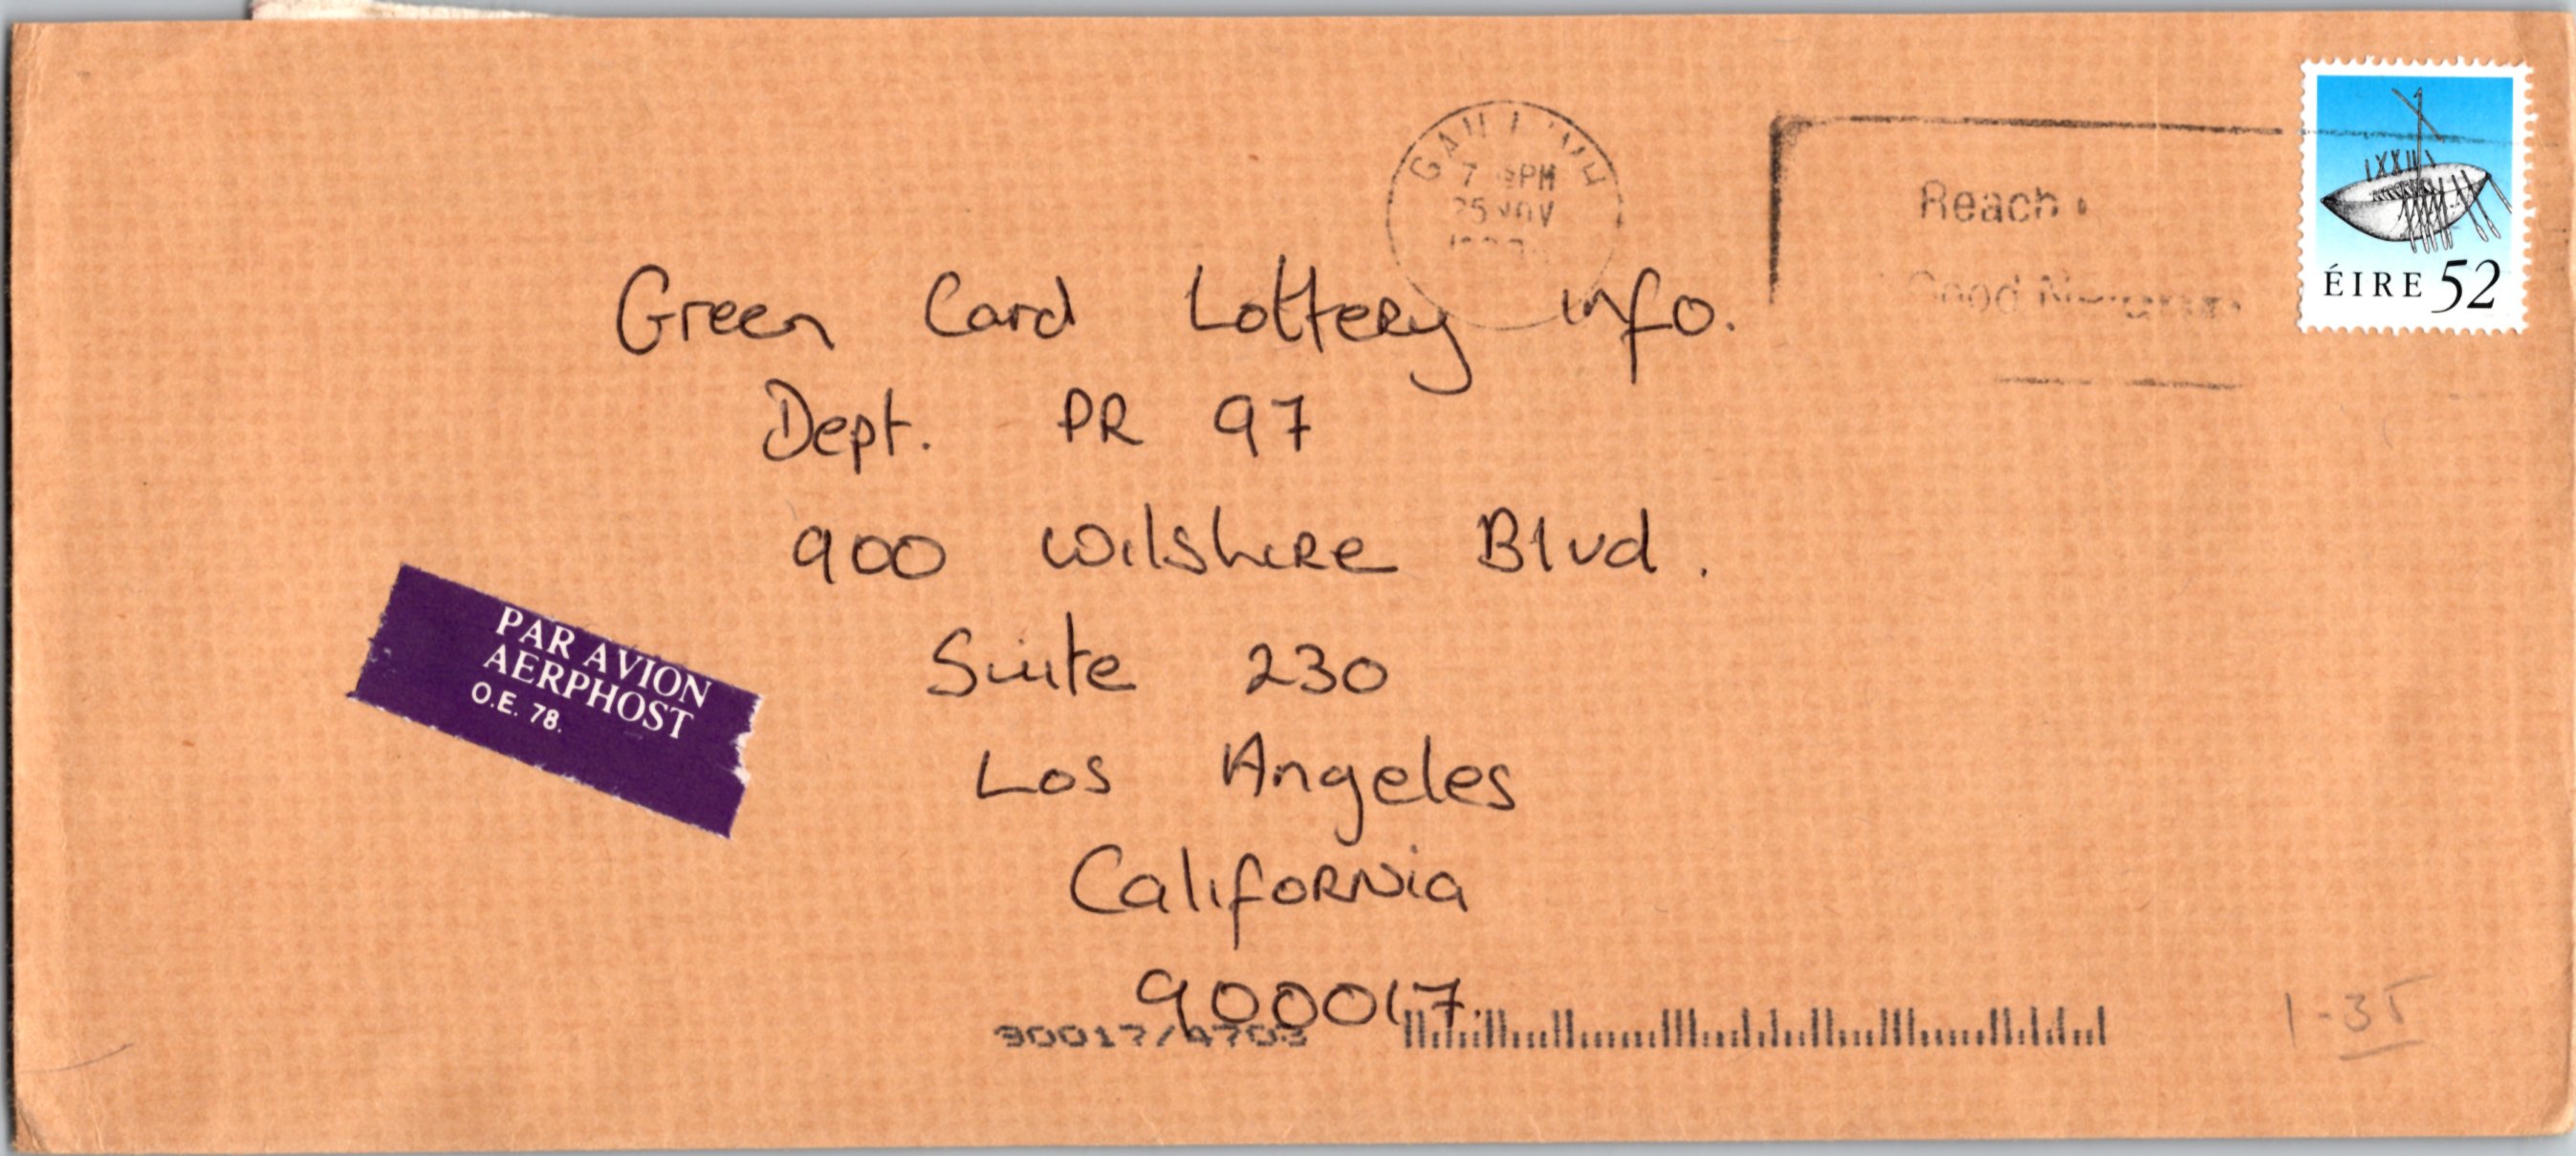 7 PM
Reach
Good
ÉIRE 52
Green Card Lottery info.
Dept. PR 97
900 Wilshire Blvd.
Suite 230
Los Angeles
California
900017.
PAR AVION
AERPHOST
O.E. 78.
90017/4703
1-35